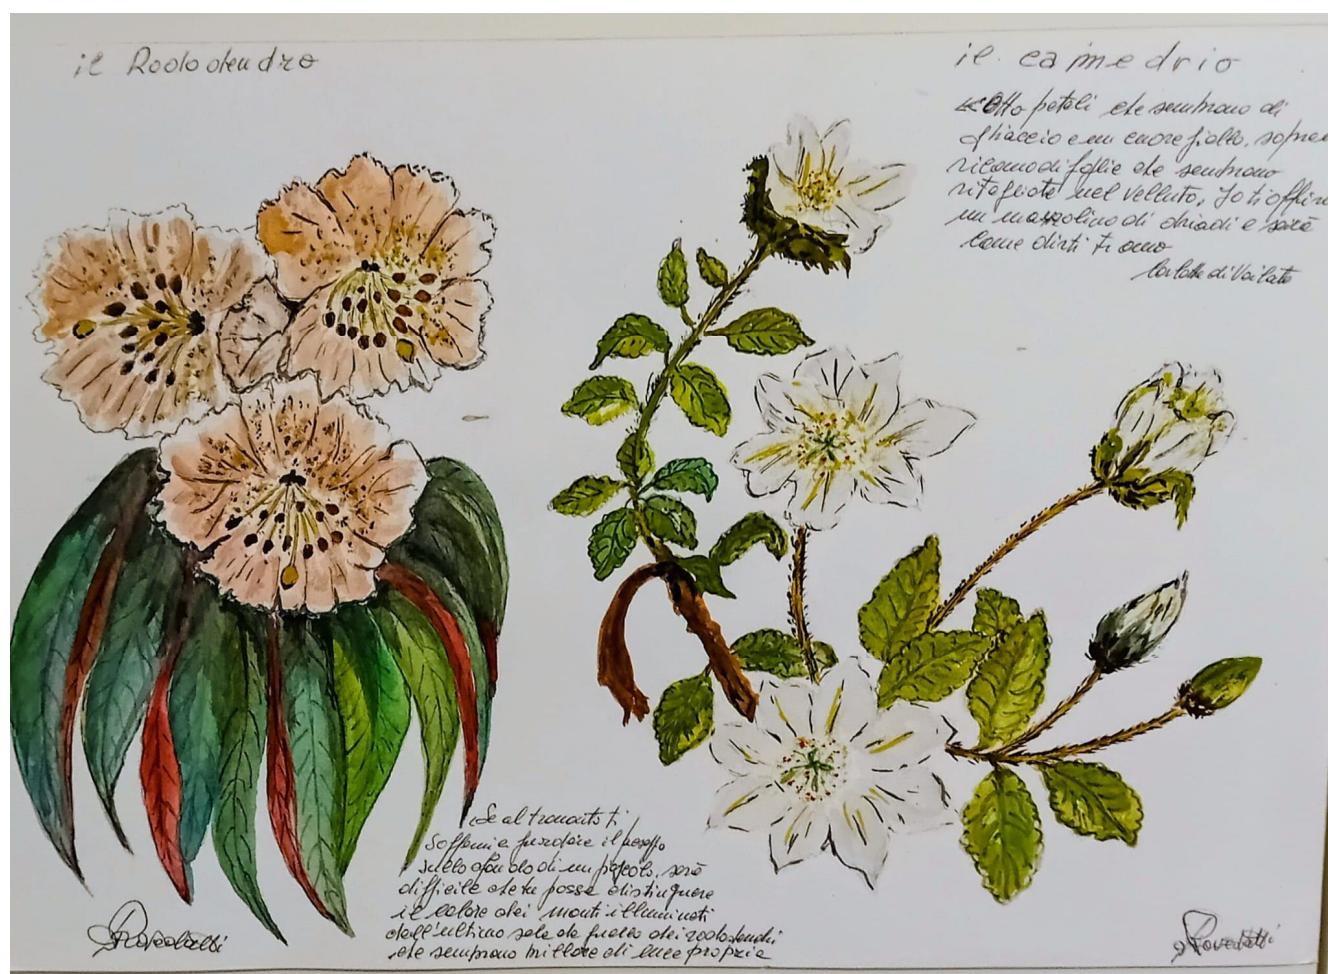 il Rododendro
il camedrio
Otto petali che sembrano di
ghiaccio e un cuore giallo, sopra
ricamo di foglie che sembrano
ritagliate nel velluto, Io ti offro
un mazzolino di driadi e sarà
come dirti ti amo
Se al tramonto ti
soffermi a guardare il
sullo sfondo di un sarà
difficile che tu possa distinguere
il colore dei monti illuminati
dall'ultimo sole da quello dei rododendri
che sembrano brillare di luce propria
Rovedatti
Rovedatti